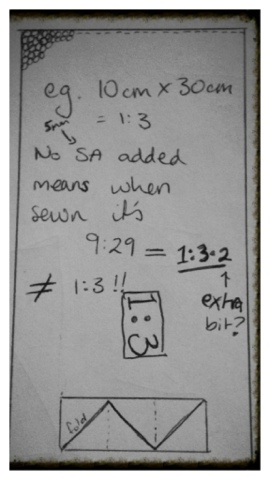 eg. 10cm x 30cm
5mm = 1:3
No SA added
means when
sewn it's
9:29 = 1:3.2
≠ 1:3 !! extra
bit?
1:3
fold